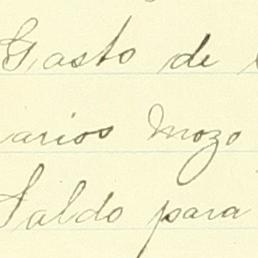 Gasto de
arios Mozo
Saldo para